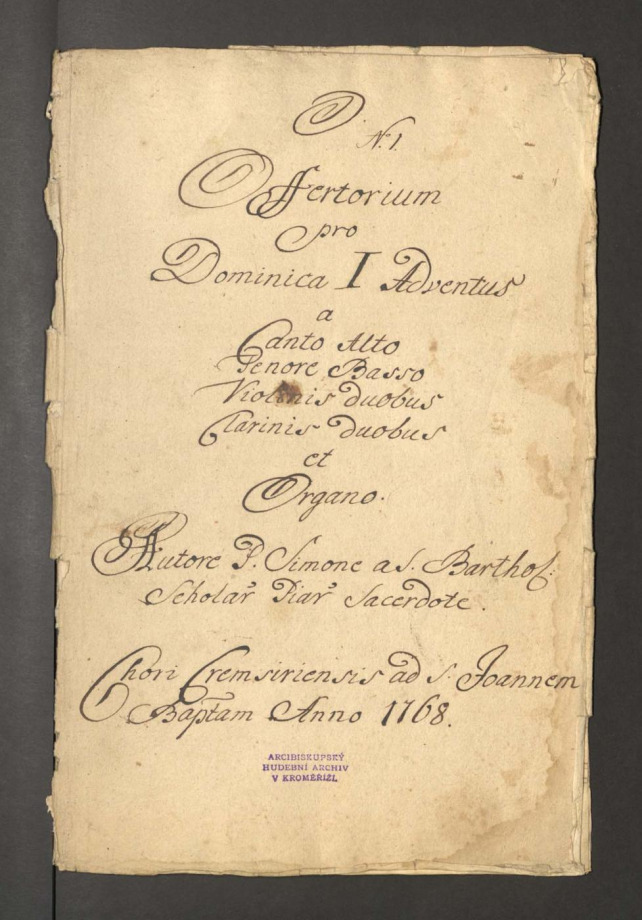 D.
N.º 1.
Offertorium
pro
Dominica I Adventus
a
Canto Alto
Tenore Basso
Violinis duobus
Clarinis duobus
et
Organo.
Autore P. Simone a S. Barthol:
Scholar̃ Piar̃ Sacerdote.
Chori Cremsiriensis ad S. Joannem
Bap̃tam Anno 1768.
ARCIBISKUPSKÝ
HUDEBNÍ ARCHIV
V KROMĚŘÍŽI.